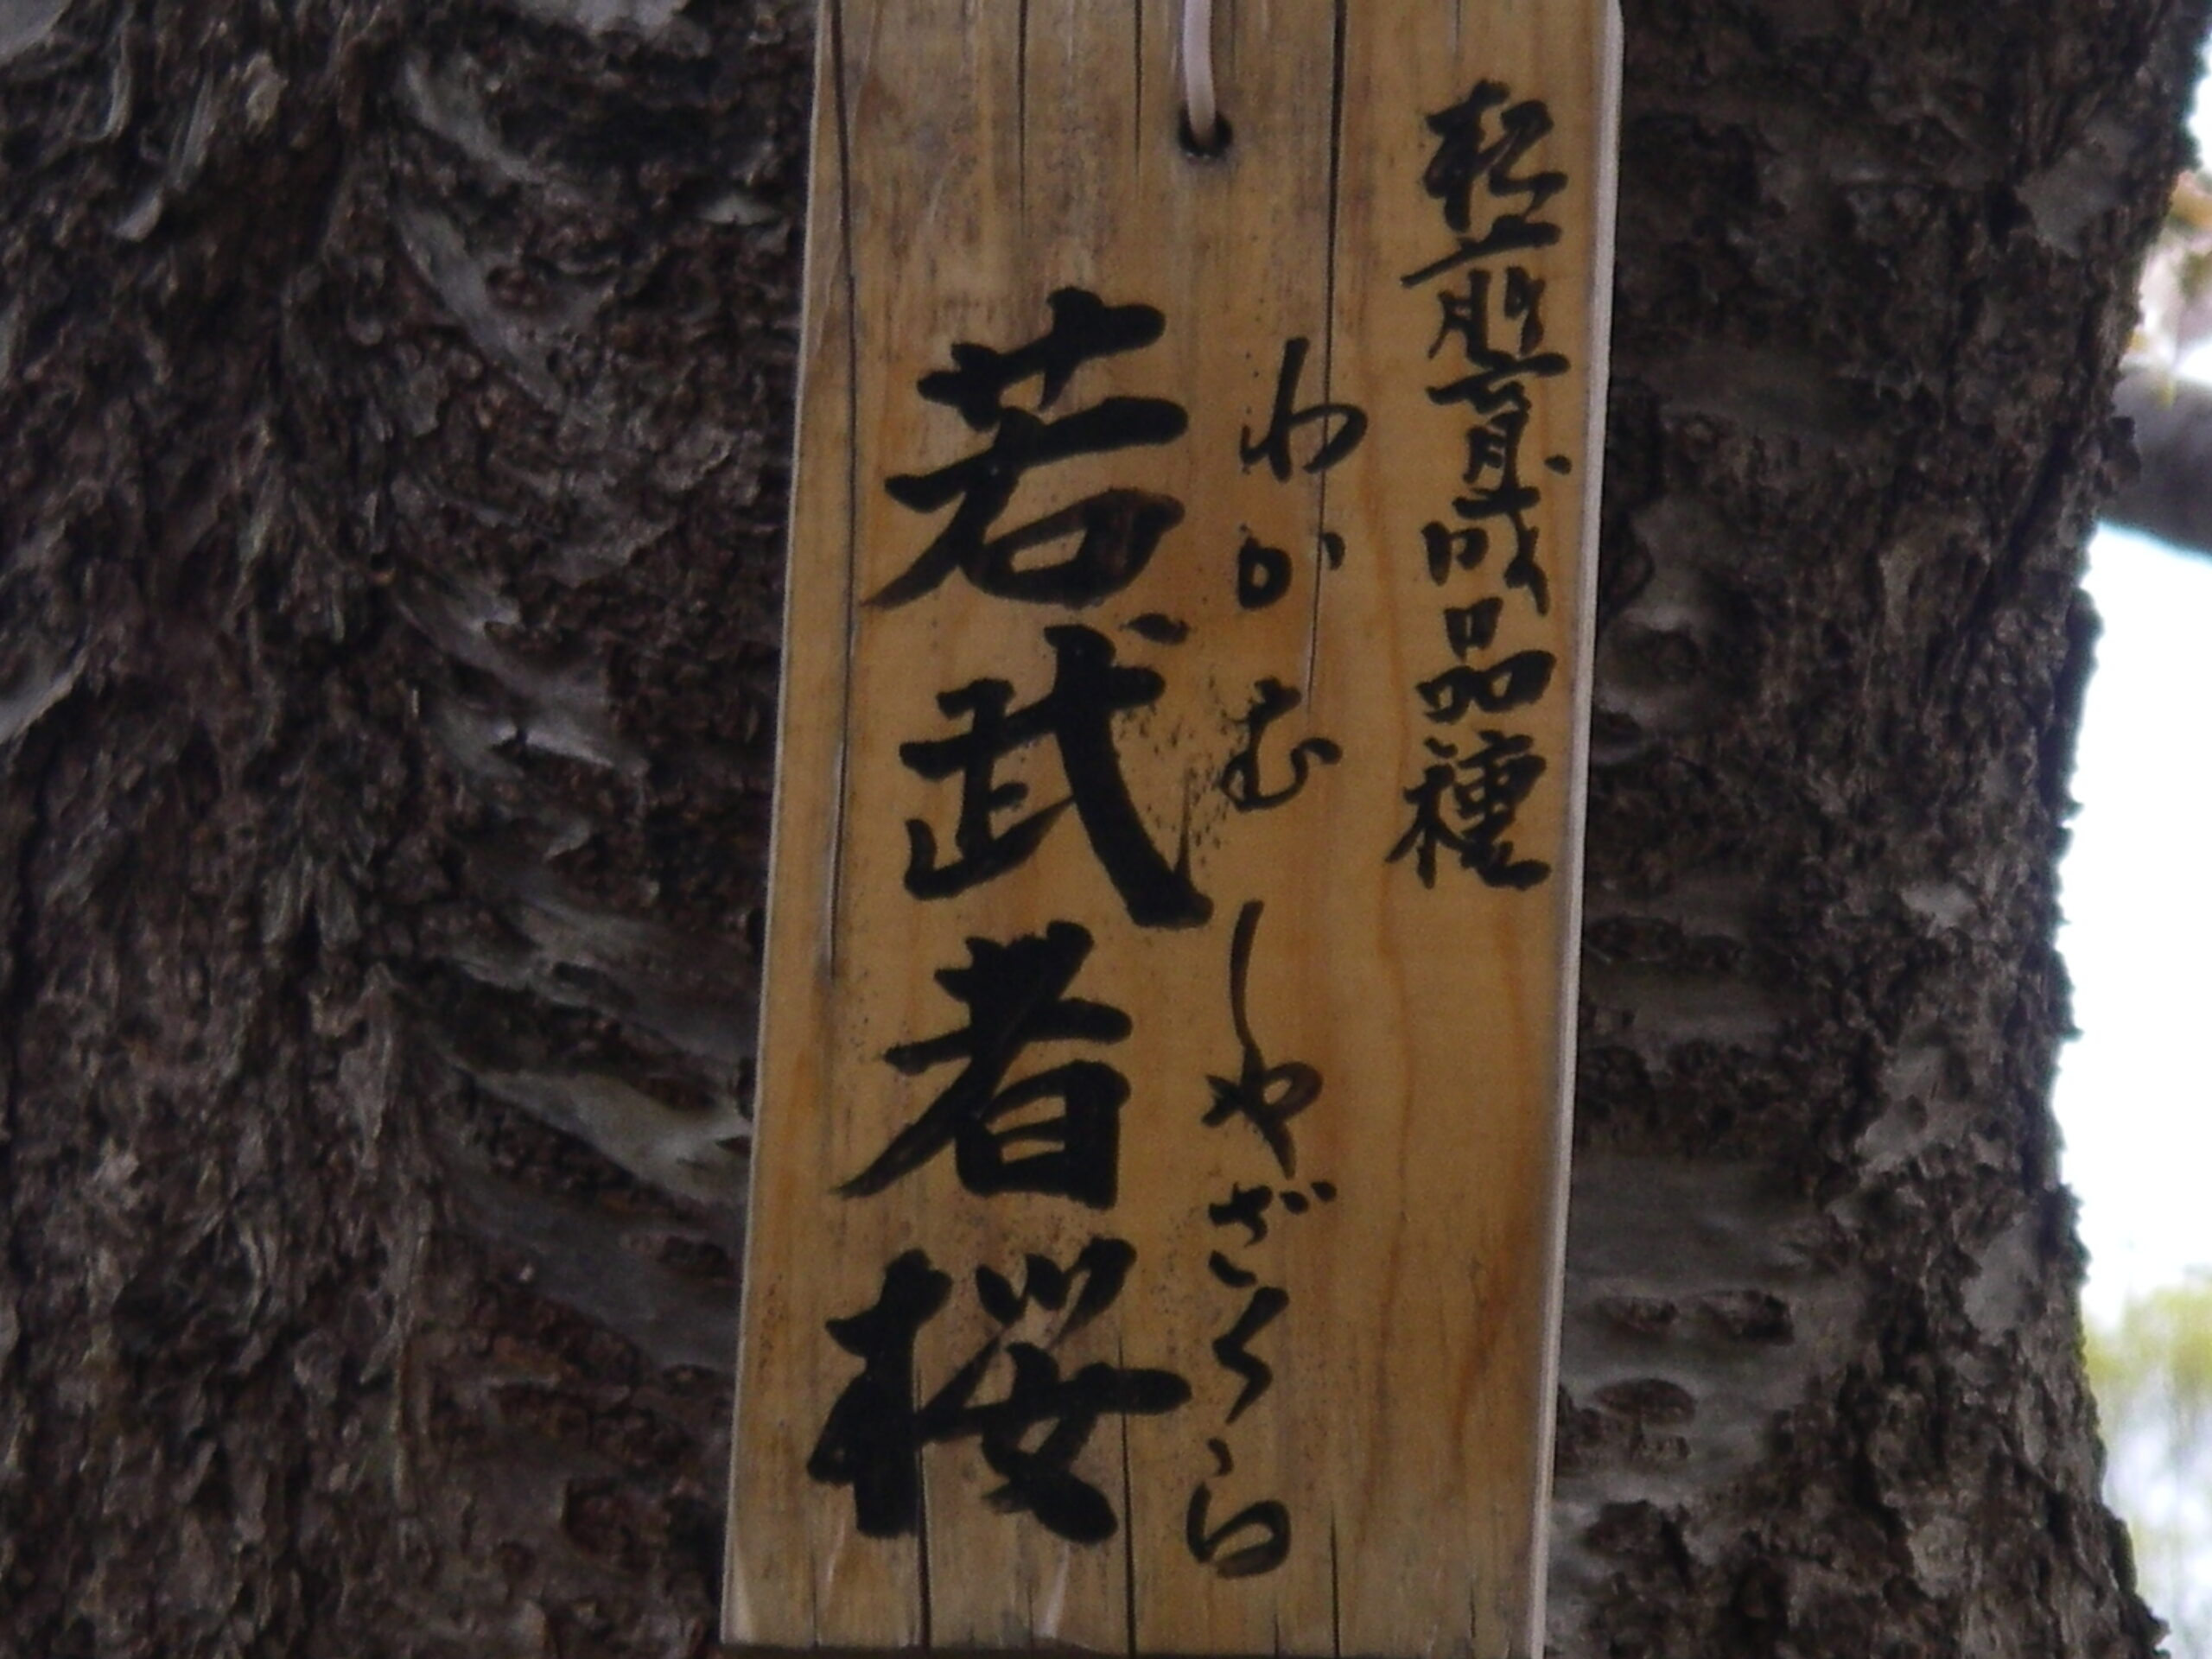 松前育成品種
わかむしやざくら
若武者桜